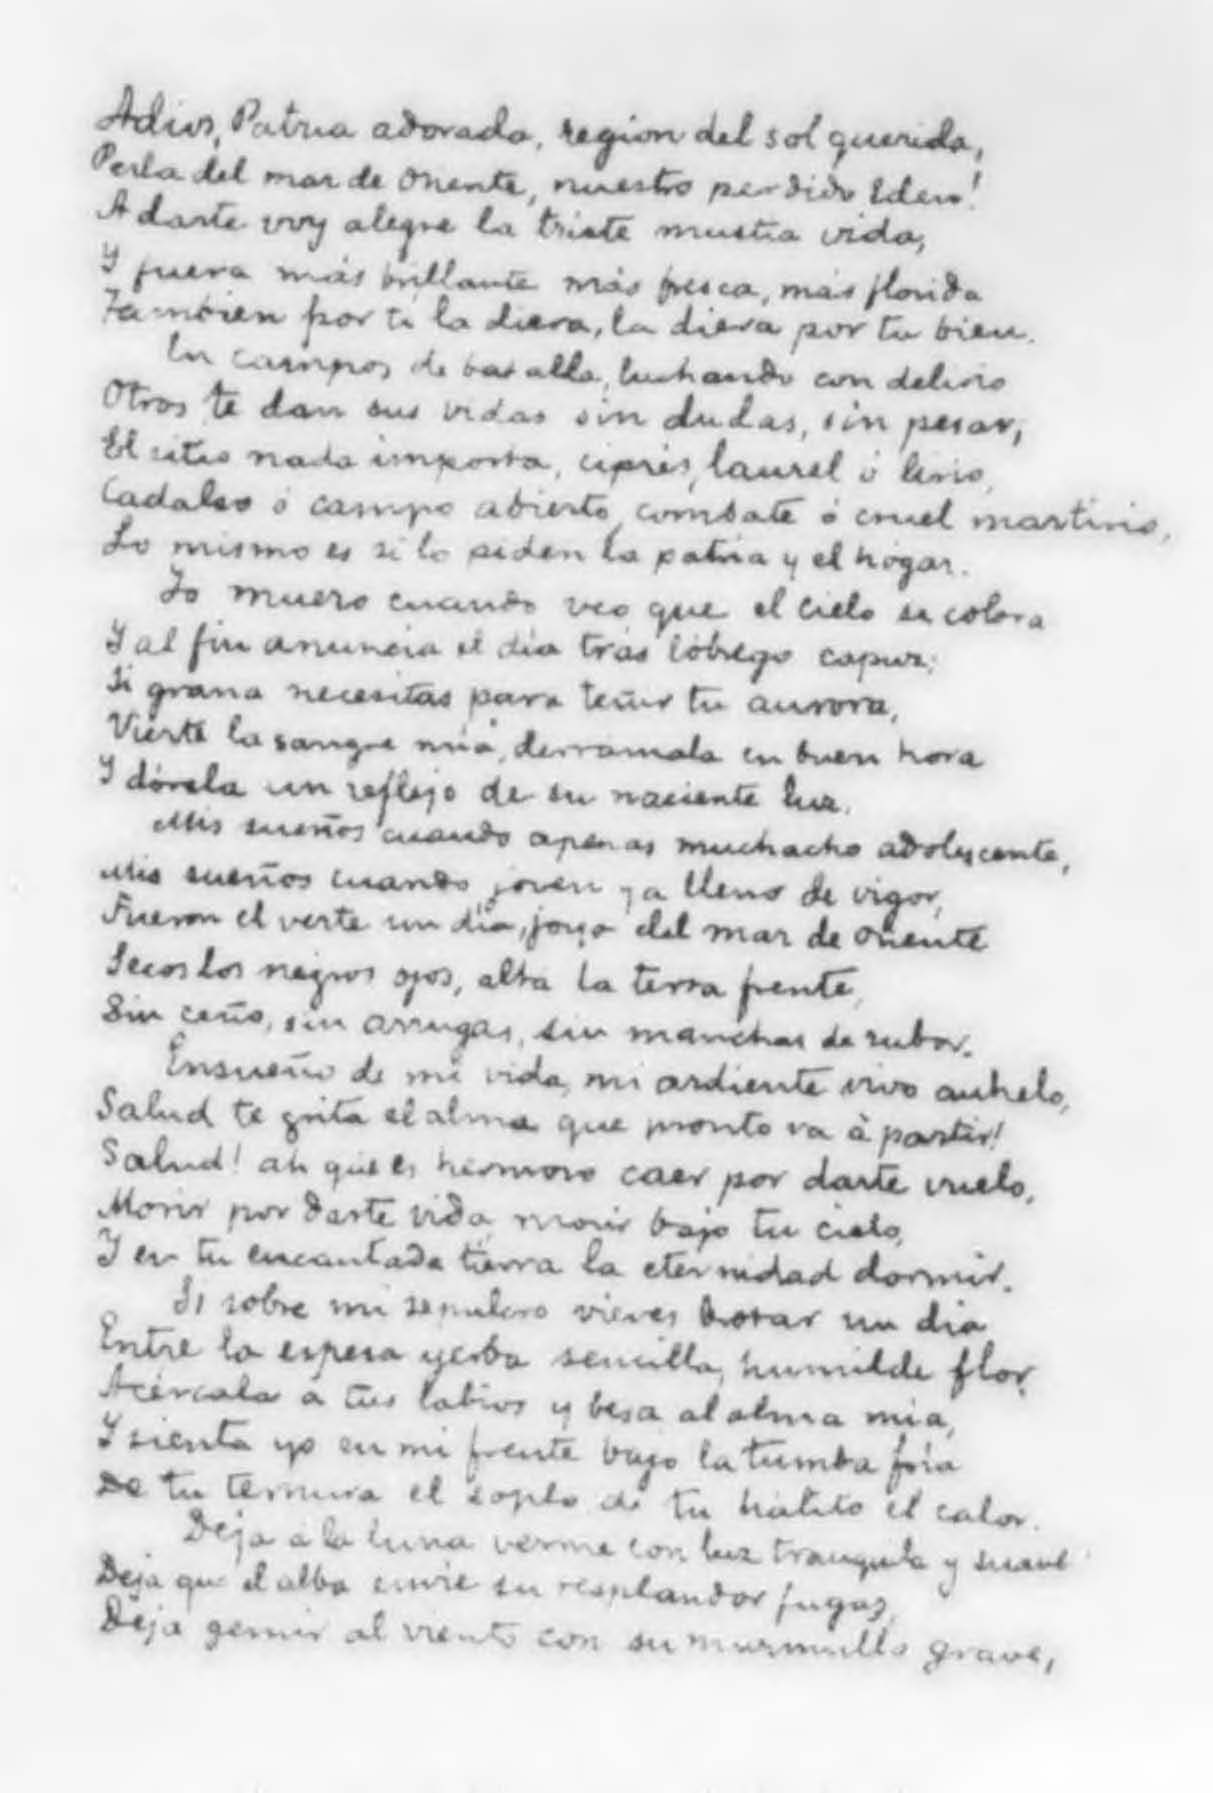 Adios, Patria adorada, region del sol querida,
Perla del mar de Oriente, nuestro perdido Eden!
A darte voy alegre la triste mustia vida,
Y fuera más brillante más fresca, más florida
Tambien por tí la diera, la diera por tu bien.
En campos de batalla, luchando con delirio
Otros te dan sus vidas sin dudas, sin pesar;
El sitio nada importa, ciprés, laurel ó lirio,
Cadalso ó campo abierto, combate ó cruel martirio,
Lo mismo es si lo piden la patria y el hogar.
Yo muero cuando veo que el cielo se colora
Y al fin anuncia el día tras lóbrego capuz;
Si grana necesitas para teñir tu aurora,
Vierte la sangre mía, derramala en buen hora
Y dórela un reflejo de su naciente luz.
Mis sueños cuando apenas muchacho adolescente,
Mis sueños cuando joven ya lleno de vigor,
Fueron el verte un día, joya del mar de Oriente
Secos los negros ojos, alta la tersa frente,
Sin ceño, sin arrugas, sin manchas de rubor.
Ensueño de mi vida, mi ardiente vivo anhelo,
Salud te grita el alma que pronto va á partir!
Salud! ah que es hermoso caer por darte vuelo,
Morir por darte vida, morir bajo tu cielo,
Y en tu encantada tierra la eternidad dormir.
Si sobre mi sepulcro vieres brotar un dia
Entre la espesa yerba sencilla, humilde flor,
Acércala a tus labios y besa al alma mia,
Y sienta yo en mi frente bajo la tumba fria
De tu ternura el soplo, de tu hálito el calor.
Deja á la luna verme con luz tranquila y suave
Deja que el alba envie su resplandor fugaz,
Deja gemir al viento con su murmullo grave,